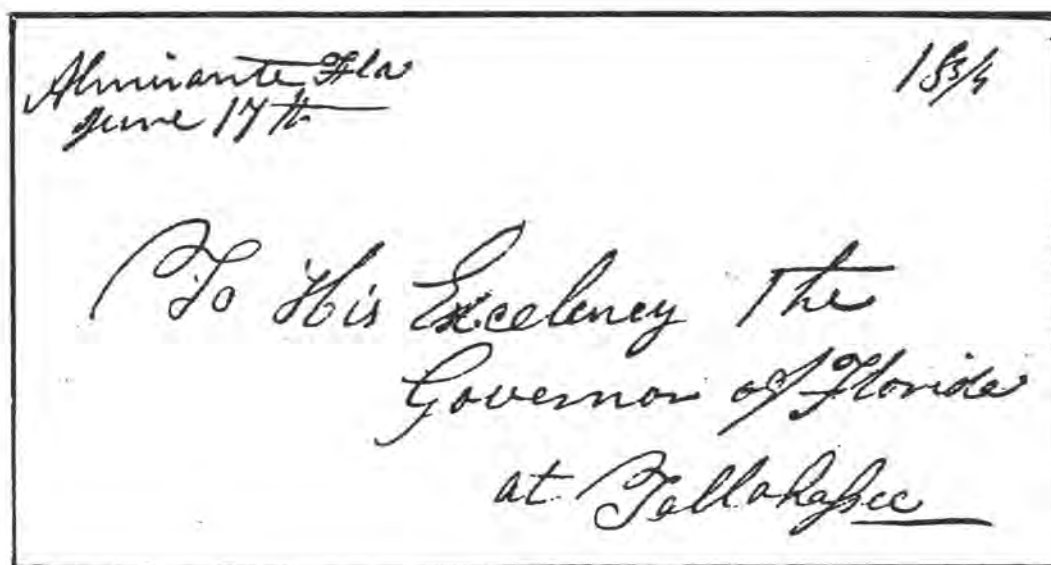 Almirante Fla 18 3/4
June 17th
To His Excelency The
Governor of Florida
at Tallahaſsee